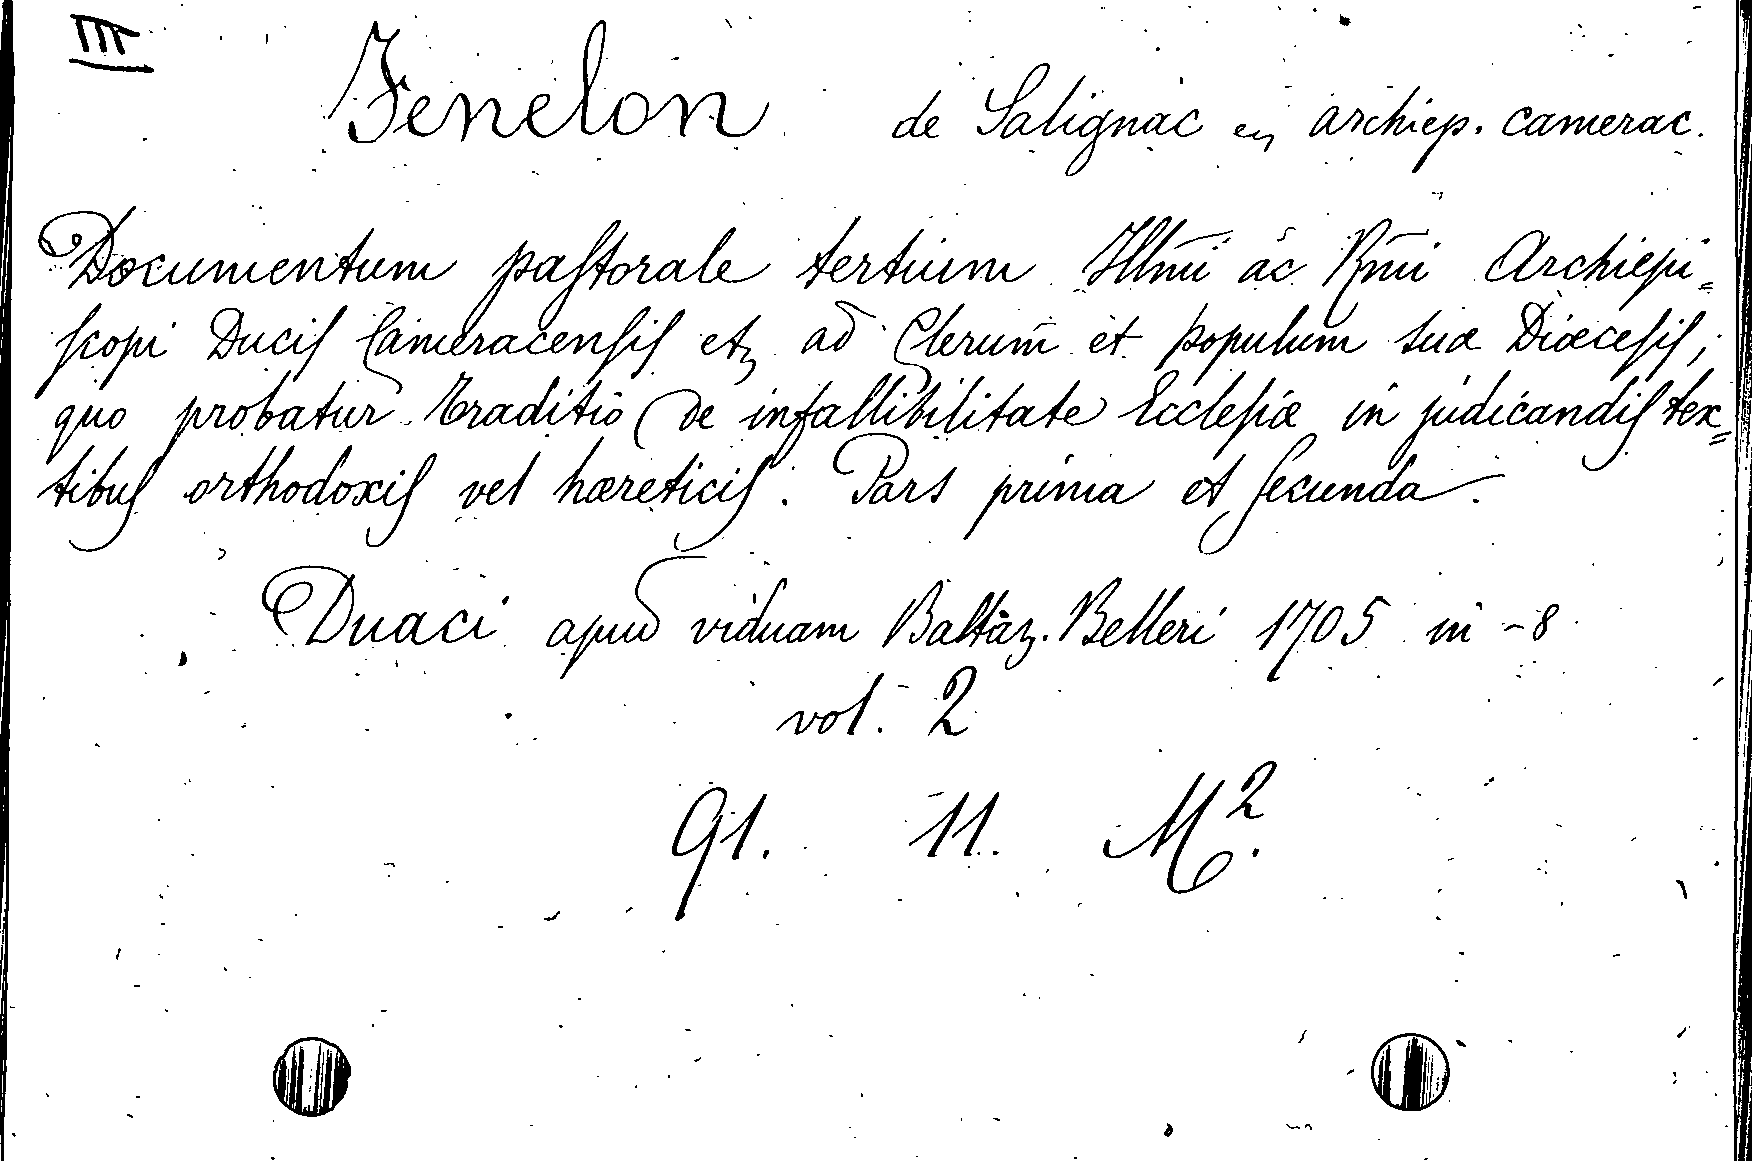 III
Fenelon de Salignac en archiep. camerac.
Documentum paſtorale tertium Illm̃i ac Rm̃i Archiepi=
ſcopi Ducis Cameracenſis etz ad Clerum et populum suæ Diœceſis,
quo probatur Traditio de infallibilitate Eccleſiæ in judicandis tex=
tibus orthodoxis vel hæreticis. Pars prima et ſecunda.
Duaci apud viduam Baltaz. Belleri 1705 in-8
vol. 2
91. 11. M².